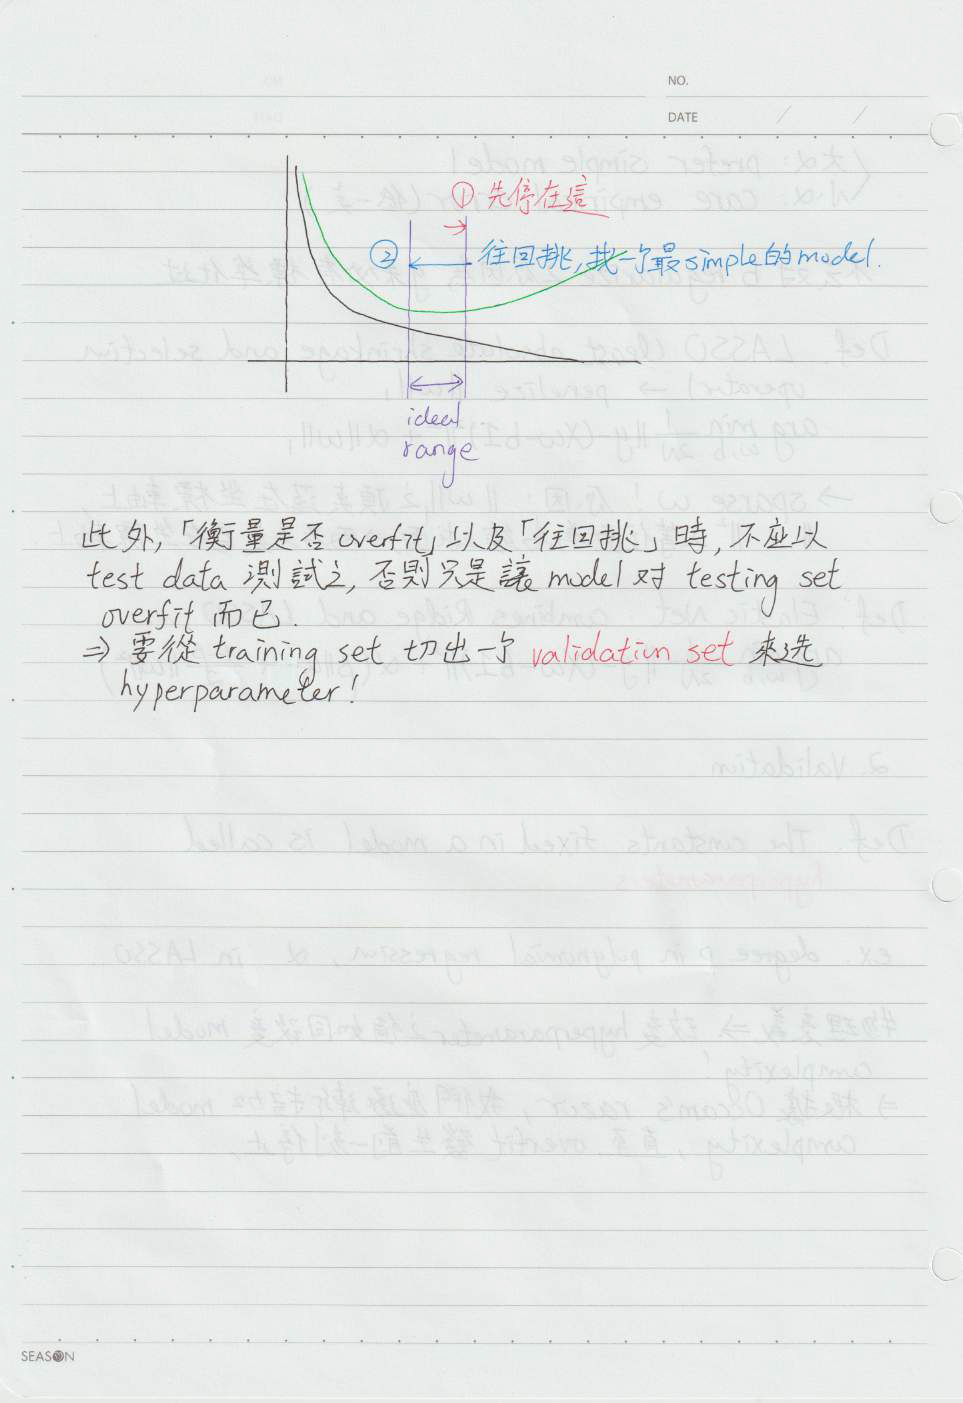 NO.
DATE / /
① 先停在這
② 往回挑,找一个最simple的model.
ideal
range
此外,「衡量是否overfit」以及「往回挑」時,不应以
test data 測試之,否則只是讓 model 对 testing set
overfit 而已.
⇒ 要從 training set 切出一个 validation set 來选
hyperparameter!
SEASON